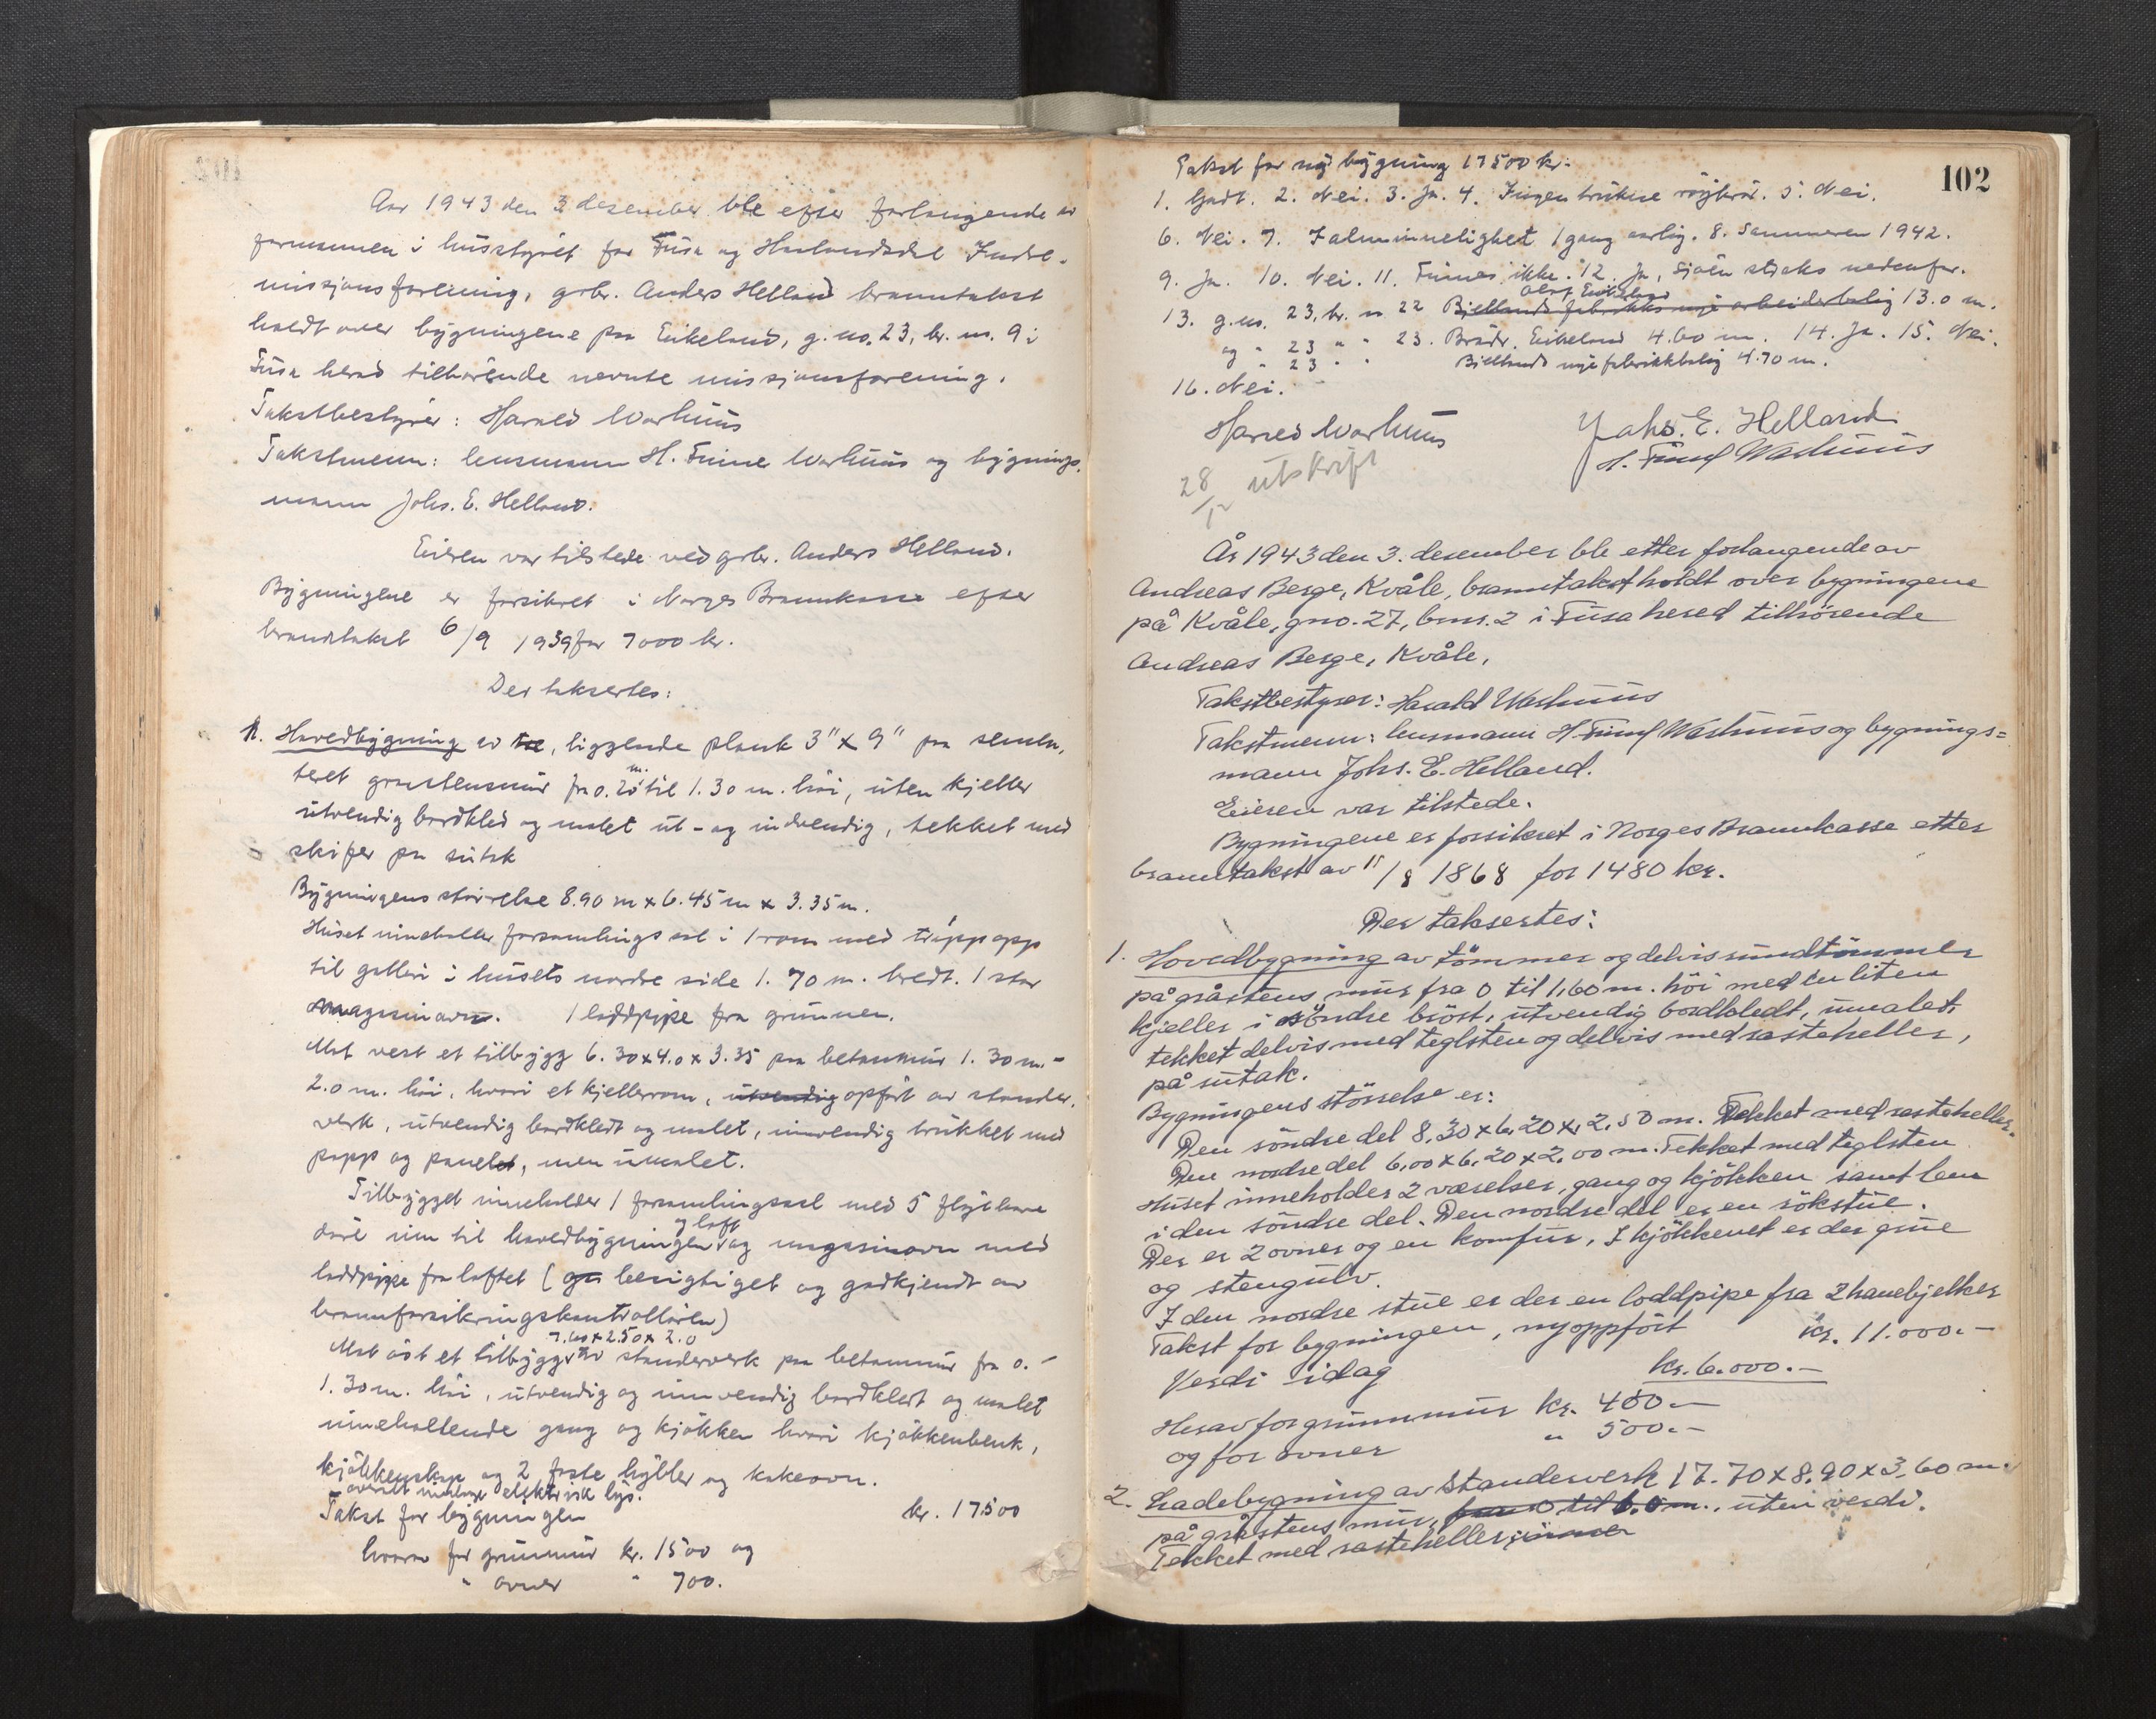 Aar 1943 den 3 desember ble efter forlangende av
formannen i husstyret for Fusa og Haalandsdal Indre-
missjonsforening, grbr. Anders Helland branntakst
holdt over bygningene paa Eikeland, g. no. 23, br. nr. 9 i
Fusa herad tilhørende nevnte missjonsforening.
Takstbestyrer: Harald Warhuus
Takstmenn: lensmann H. Finne Warhuus og bygnings-
mann Johs. E. Helland.
Eieren var tilstede ved grbr. Anders Helland.
Bygningene er forsikret i Norges Brannkasse efter
brandtakst 6/9 1939 for 7000 kr.
Der taksertes:
1. Hovedbygning av tre, liggende plank 3" x 9" paa semen-
teret graastensmur fra 0.20 m. til 1.30 m. høi, uten kjeller
utvendig bordkled og malet ut- og indvendig, tekket med
skifer paa sutak
Bygningens størrelse 8.90 m x 6.45 m x 3.35 m.
Huset inneholder forsamlingssal i 1 rom med trapp opp
til galleri i husets nordre side 1.70 m. bredt. 1 stor
magasinovn. 1 loddpipe fra grunnen.
Mot vest et tilbygg 6.30 x 4.0 x 3.35 paa betonmur 1.30 m. -
2.0 m. høi, hvori et kjellerrom, utvendig opført av stender-
verk, utvendig bordkledt og malet, innvendig trukket med
papp og panelt, men umalet.
Tilbygget inneholder 1 forsamlingssal med 5 fløibare
døre inn til hovedbygningen og loft og magasinovn med
loddpipe fra loftet (besigtiget og godkjendt av
brannforsikringskontrolløren)
Mot øst et tilbygg 7.60 x 2.50 x 2.0 av stenderverk paa betonmur fra 0. -
1.30 m. høi, utvendig og innvendig bordkledt og malet
inneholdende gang og kjøkken hvori kjøkkenbenk,
kjøkkenskap og 2 faste hyller og kokeovn.
overalt innlagt elektrisk lys.
Takst for bygningen kr. 17500
hvorav for grunnmur kr. 1500 og
" ovner " 700.
102
Takst for ny bygning 17500 kr.
1. Godt. 2. Nei. 3. Ja. 4. Ingen trukne røykrør. 5. Nei.
6. Nei. 7. I alminnelighet 1 gang aarlig. 8. Sommeren 1942.
9. Ja. 10. Nei. 11. Finnes ikke. 12. Ja, sjøen straks nedenfor.
Olaf Eikeland
13. g. no. 23, br. no 22 Bjellands fabrikks nye arbeiderbolig 13.0 m.
og " 23 " " 23. Brødr. Eikeland 4.60 m. 14. Ja. 15. Nei.
" 23 " " Bjellands nye fabrikkbolig 4.70 m.
16. Nei.
Harald Warhuus Johs. E. Helland
H. Finne Warhuus
28/12 utskrift
År 1943 den 3. desember ble etter forlangende av
Andreas Berge, Kvåle, branntakst holdt over bygningene
på Kvåle, gno. 27, bnr. 2 i Fusa hered tilhörende
Andreas Berge, Kvåle.
Takstbestyrer: Harald Warhuus
Takstmenn: lensmann H Finne Warhuus og bygnings=
mann Johs. E. Helland.
Eieren var tilstede.
Bygningene er forsikret i Norges Brannkasse etter
branntakst av 11/8 1868 for 1480 kr.
Der taksertes:
1. Hovedbygning av tömmer og delvis rundtömmer
på gråstens mur fra 0 til 1,60 m. höi med en liten
kjeller i söndre bröst, utvendig bordkledt, umalet,
tekket delvis med teglsten og delvis med rasteheller,
på sutak.
Bygningens störrelse er:
Den söndre del 8,30 x 6,20 x 2,50 m. Tekket med rasteheller.
Den nordre del 6,00 x 6,20 x 2,00 m. Tekket med teglsten
Huset inneholder 2 værelser, gang og kjökken samt lem
i den söndre del. Den nordre del er en rökstue.
Der er 2 ovner og en komfur, I kjökkenet er der grue
og stengulv.
I den nordre stue er der en loddpipe fra 2 hanebjelker
Takst for bygningen, nyoppfört kr. 11.000.-
Verdi idag kr. 6.000.-
Herav for grunnmur kr. 400.-
og for ovner " 500.-
2. Ladebygning av Standerverk 17.70 x 8.90 x 3,60 m.
på gråstens mur, fra 0 til 6.0 m., uten verdi.
Tekket med rasteheller,